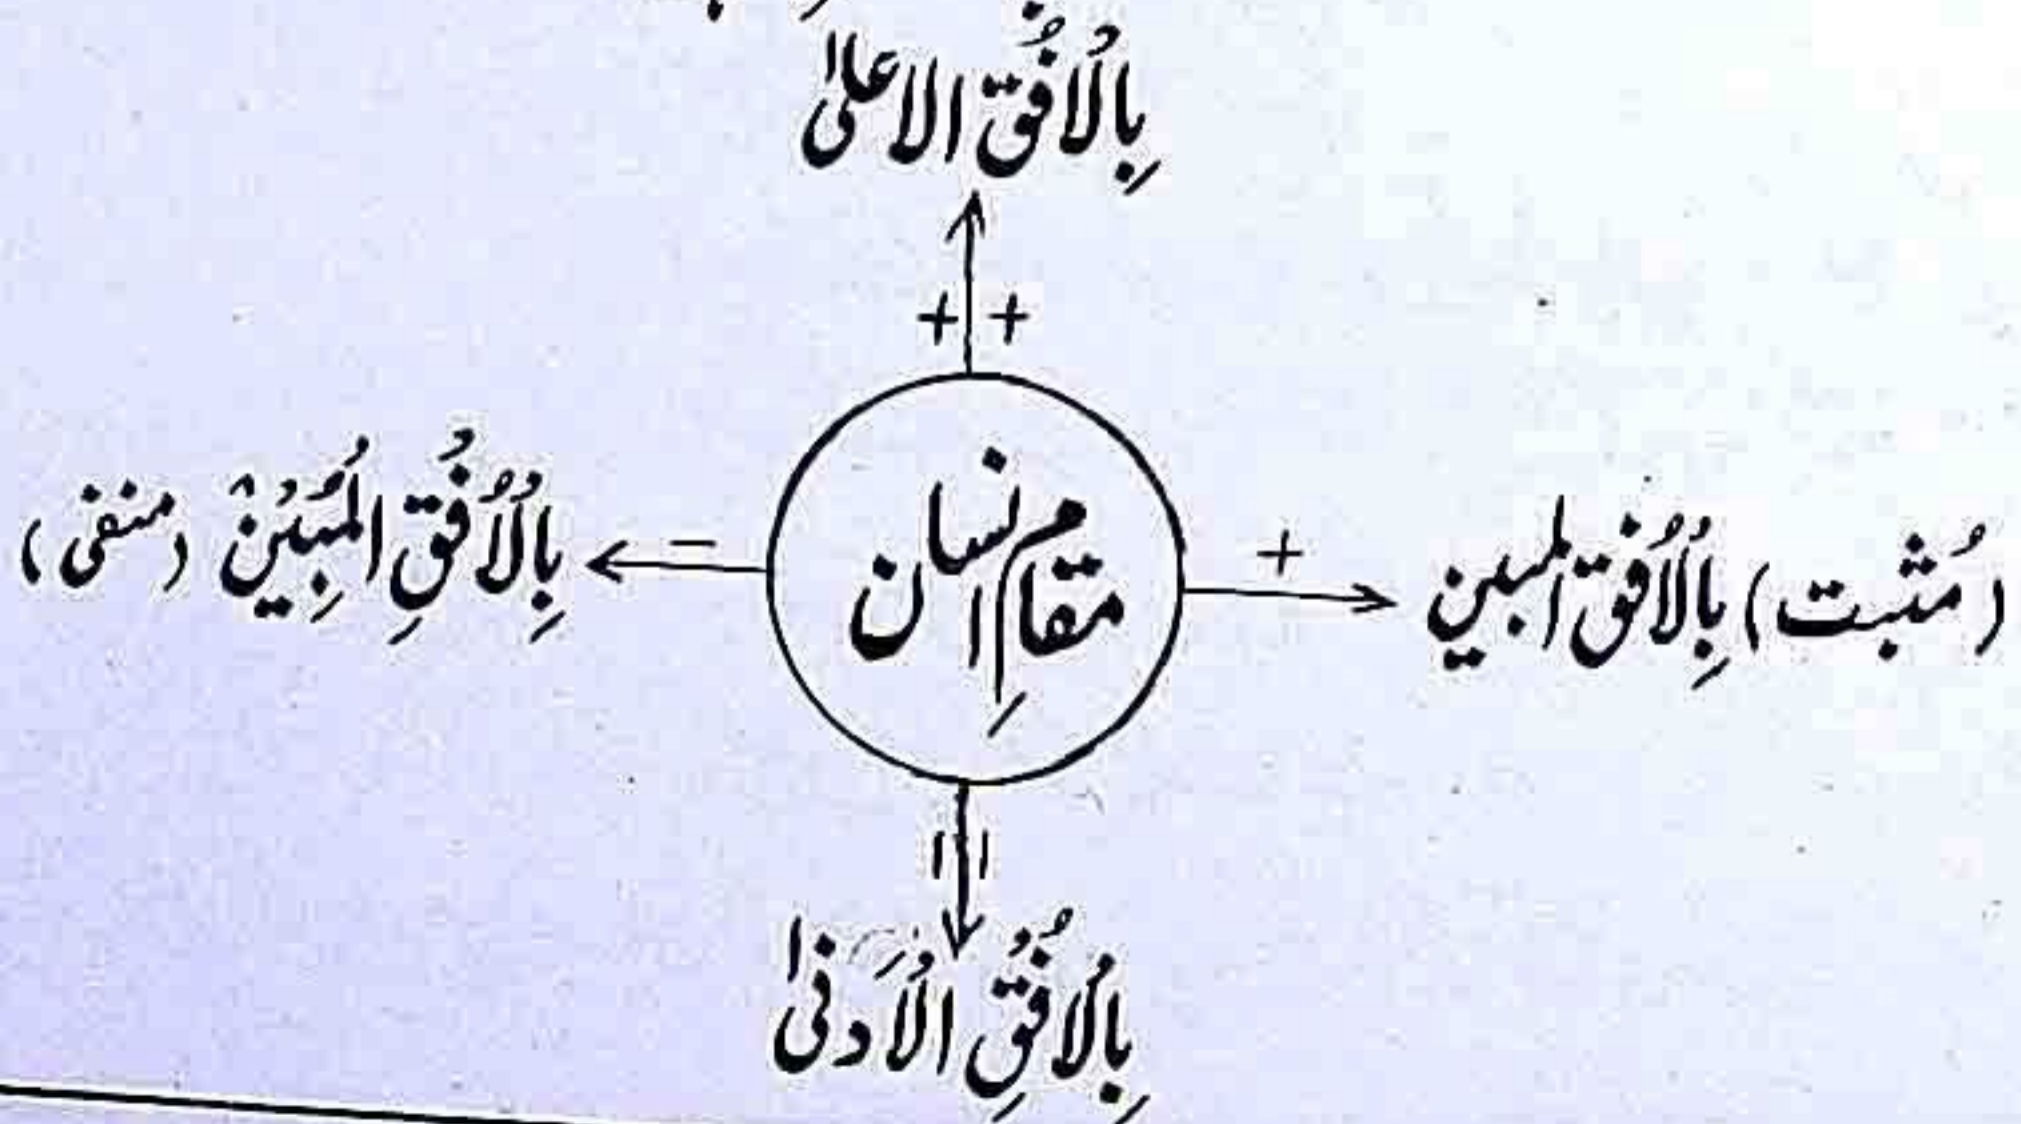 بِالْاُفُق الاعلیٰ
+ +
(مُثبت) بِالْاُفُق المبین
+
مقامِ انسان
−
بِالْاُفُقِ الْمُبِیْنْ (منفی)
| |
بِالْاُفُقِ الْاَدنیٰ